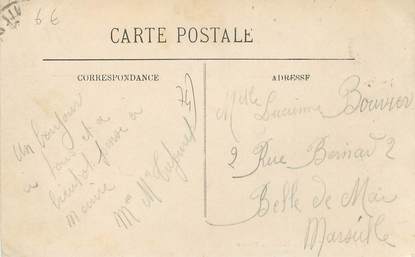 66
CARTE POSTALE
CORRESPONDANCE
ADRESSE
Un bonjour
à tous et a
bientot
Mairie
Mme
Mlle Lucienne Bouvier
2 Rue Bernard 2
Belle de Mai
Marseille